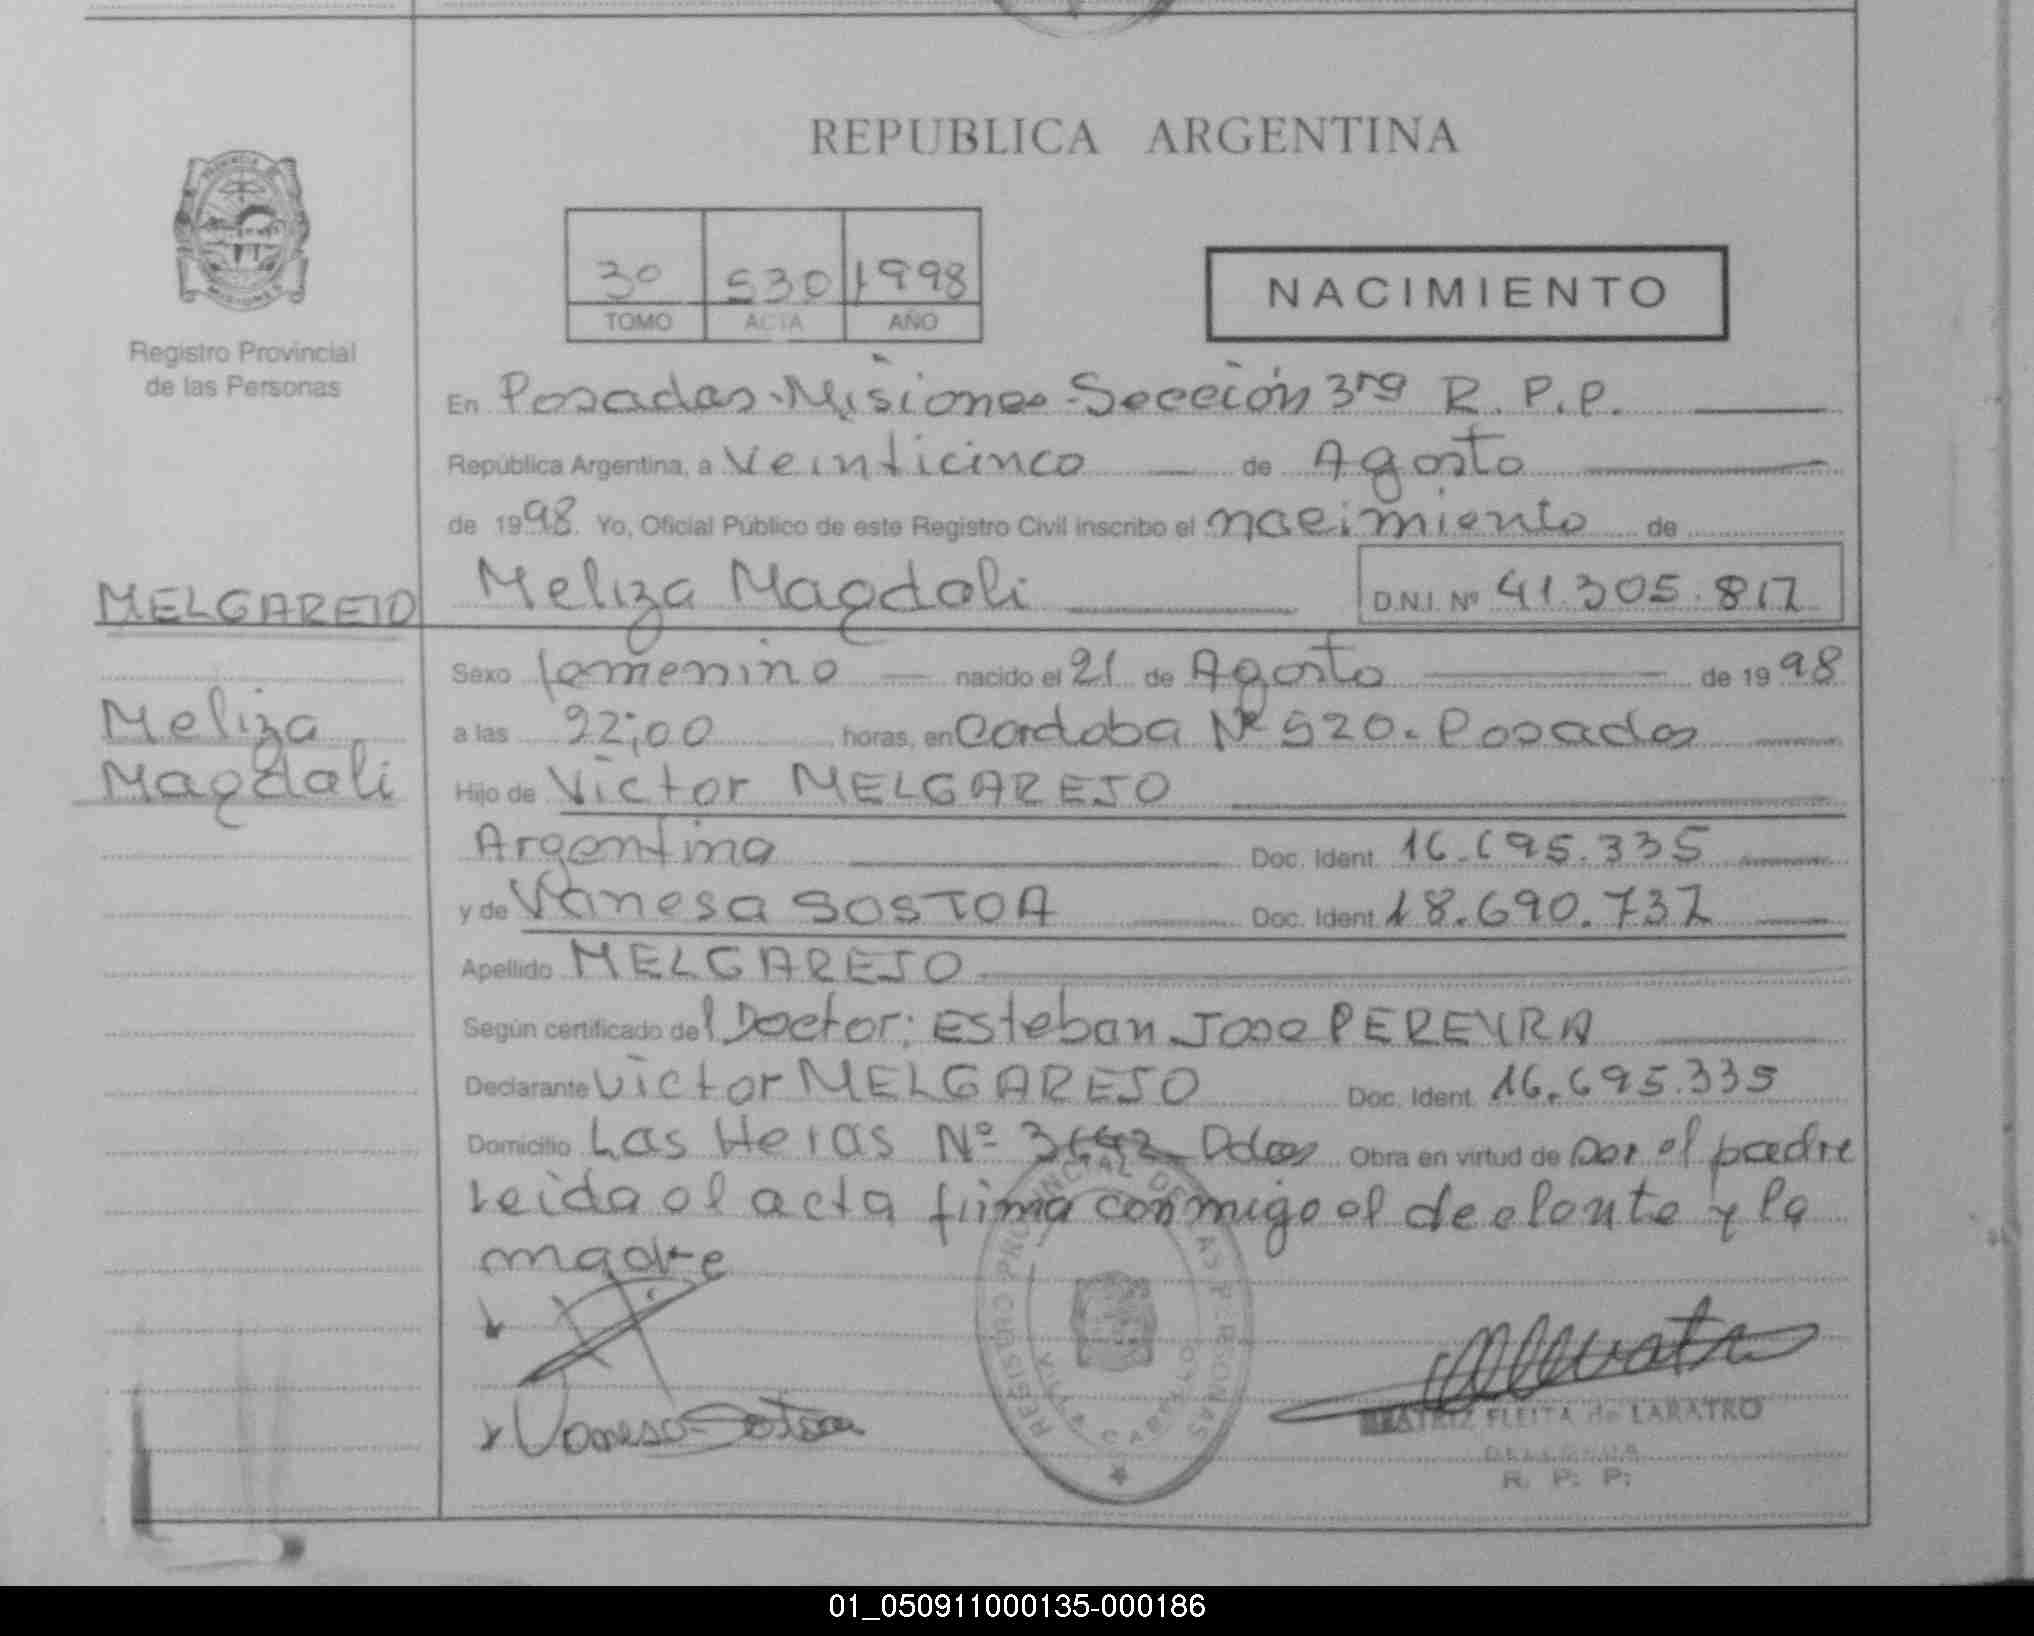 REPUBLICA ARGENTINA
3º 530 1998
TOMO ACTA AÑO
NACIMIENTO
Registro Provincial
de las Personas
En Posadas-Misiones-Sección 3ra R. P. P.
República Argentina, a Veinticinco de Agosto
de 1998 Yo, Oficial Público de este Registro Civil inscribo el nacimiento de
MELGAREJO
Meliza Magdali
D.N.I. Nº 41.305.817
Meliza
Magdali
Sexo femenino nacido el 21 de Agosto de 1998
a las 22;00 horas, en Cordoba Nº 520. Posadas
Hijo de Victor MELGAREJO
Argentina Doc. Ident. 16.695.335
y de Vanesa SOSTOA Doc. Ident. 18.690.737
Apellido MELGAREJO
Según certificado del Doctor: Esteban Jose PEREYRA
Declarante Victor MELGAREJO Doc. Ident. 16.695.335
Domicilio Las Heras Nº Pdas Obra en virtud de ser el padre
leida el acta firma conmigo el y la
madre
Vanesa Sostoa
REGISTRO PROVINCIAL DE LAS PERSONAS
BEATRIZ FLEITA de LARATRO
DELEGADA
R. P. P.
01_050911000135-000186